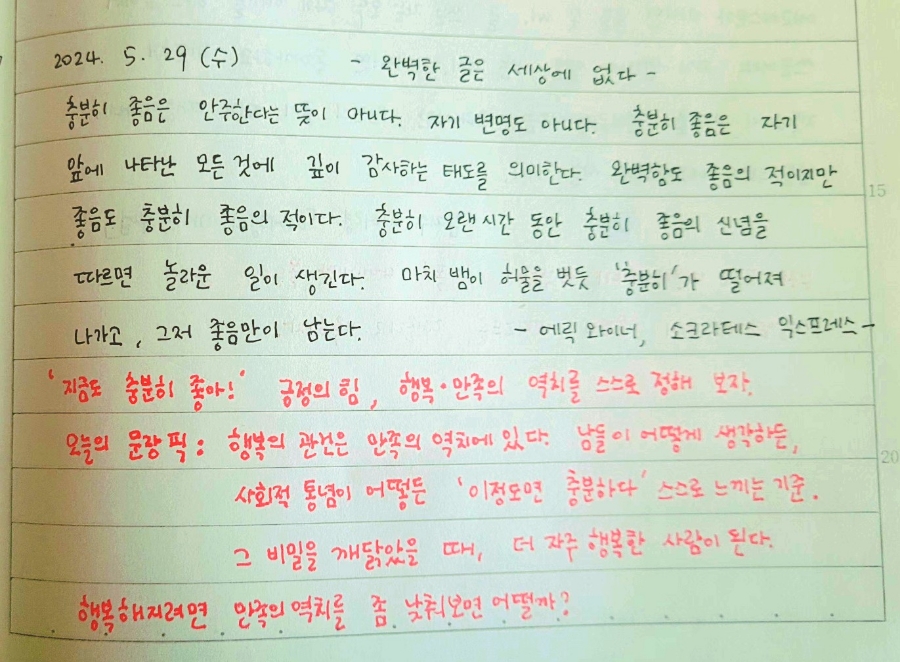 2024. 5. 29 (수) - 완벽한 글은 세상에 없다 -
충분히 좋음은 안주한다는 뜻이 아니다. 자기 변명도 아니다. 충분히 좋음은 자기
앞에 나타난 모든 것에 깊이 감사하는 태도를 의미한다. 완벽함도 좋음의 적이지만
15
좋음도 충분히 좋음의 적이다. 충분히 오랜 시간 동안 충분히 좋음의 신념을
따르면 놀라운 일이 생긴다. 마치 뱀이 허물을 벗듯 '충분히'가 떨어져
나가고, 그저 좋음만이 남는다. - 에릭 와이너, 소크라테스 익스프레스 -
'지금도 충분히 좋아!' 긍정의 힘, 행복·만족의 역치를 스스로 정해 보자.
오늘의 문장 픽 : 행복의 관건은 만족의 역치에 있다. 남들이 어떻게 생각하든,
20
사회적 통념이 어떻든 '이정도면 충분하다' 스스로 느끼는 기준.
그 비밀을 깨닭았을 때, 더 자주 행복한 사람이 된다.
행복해지려면 만족의 역치를 좀 낮춰보면 어떨까?